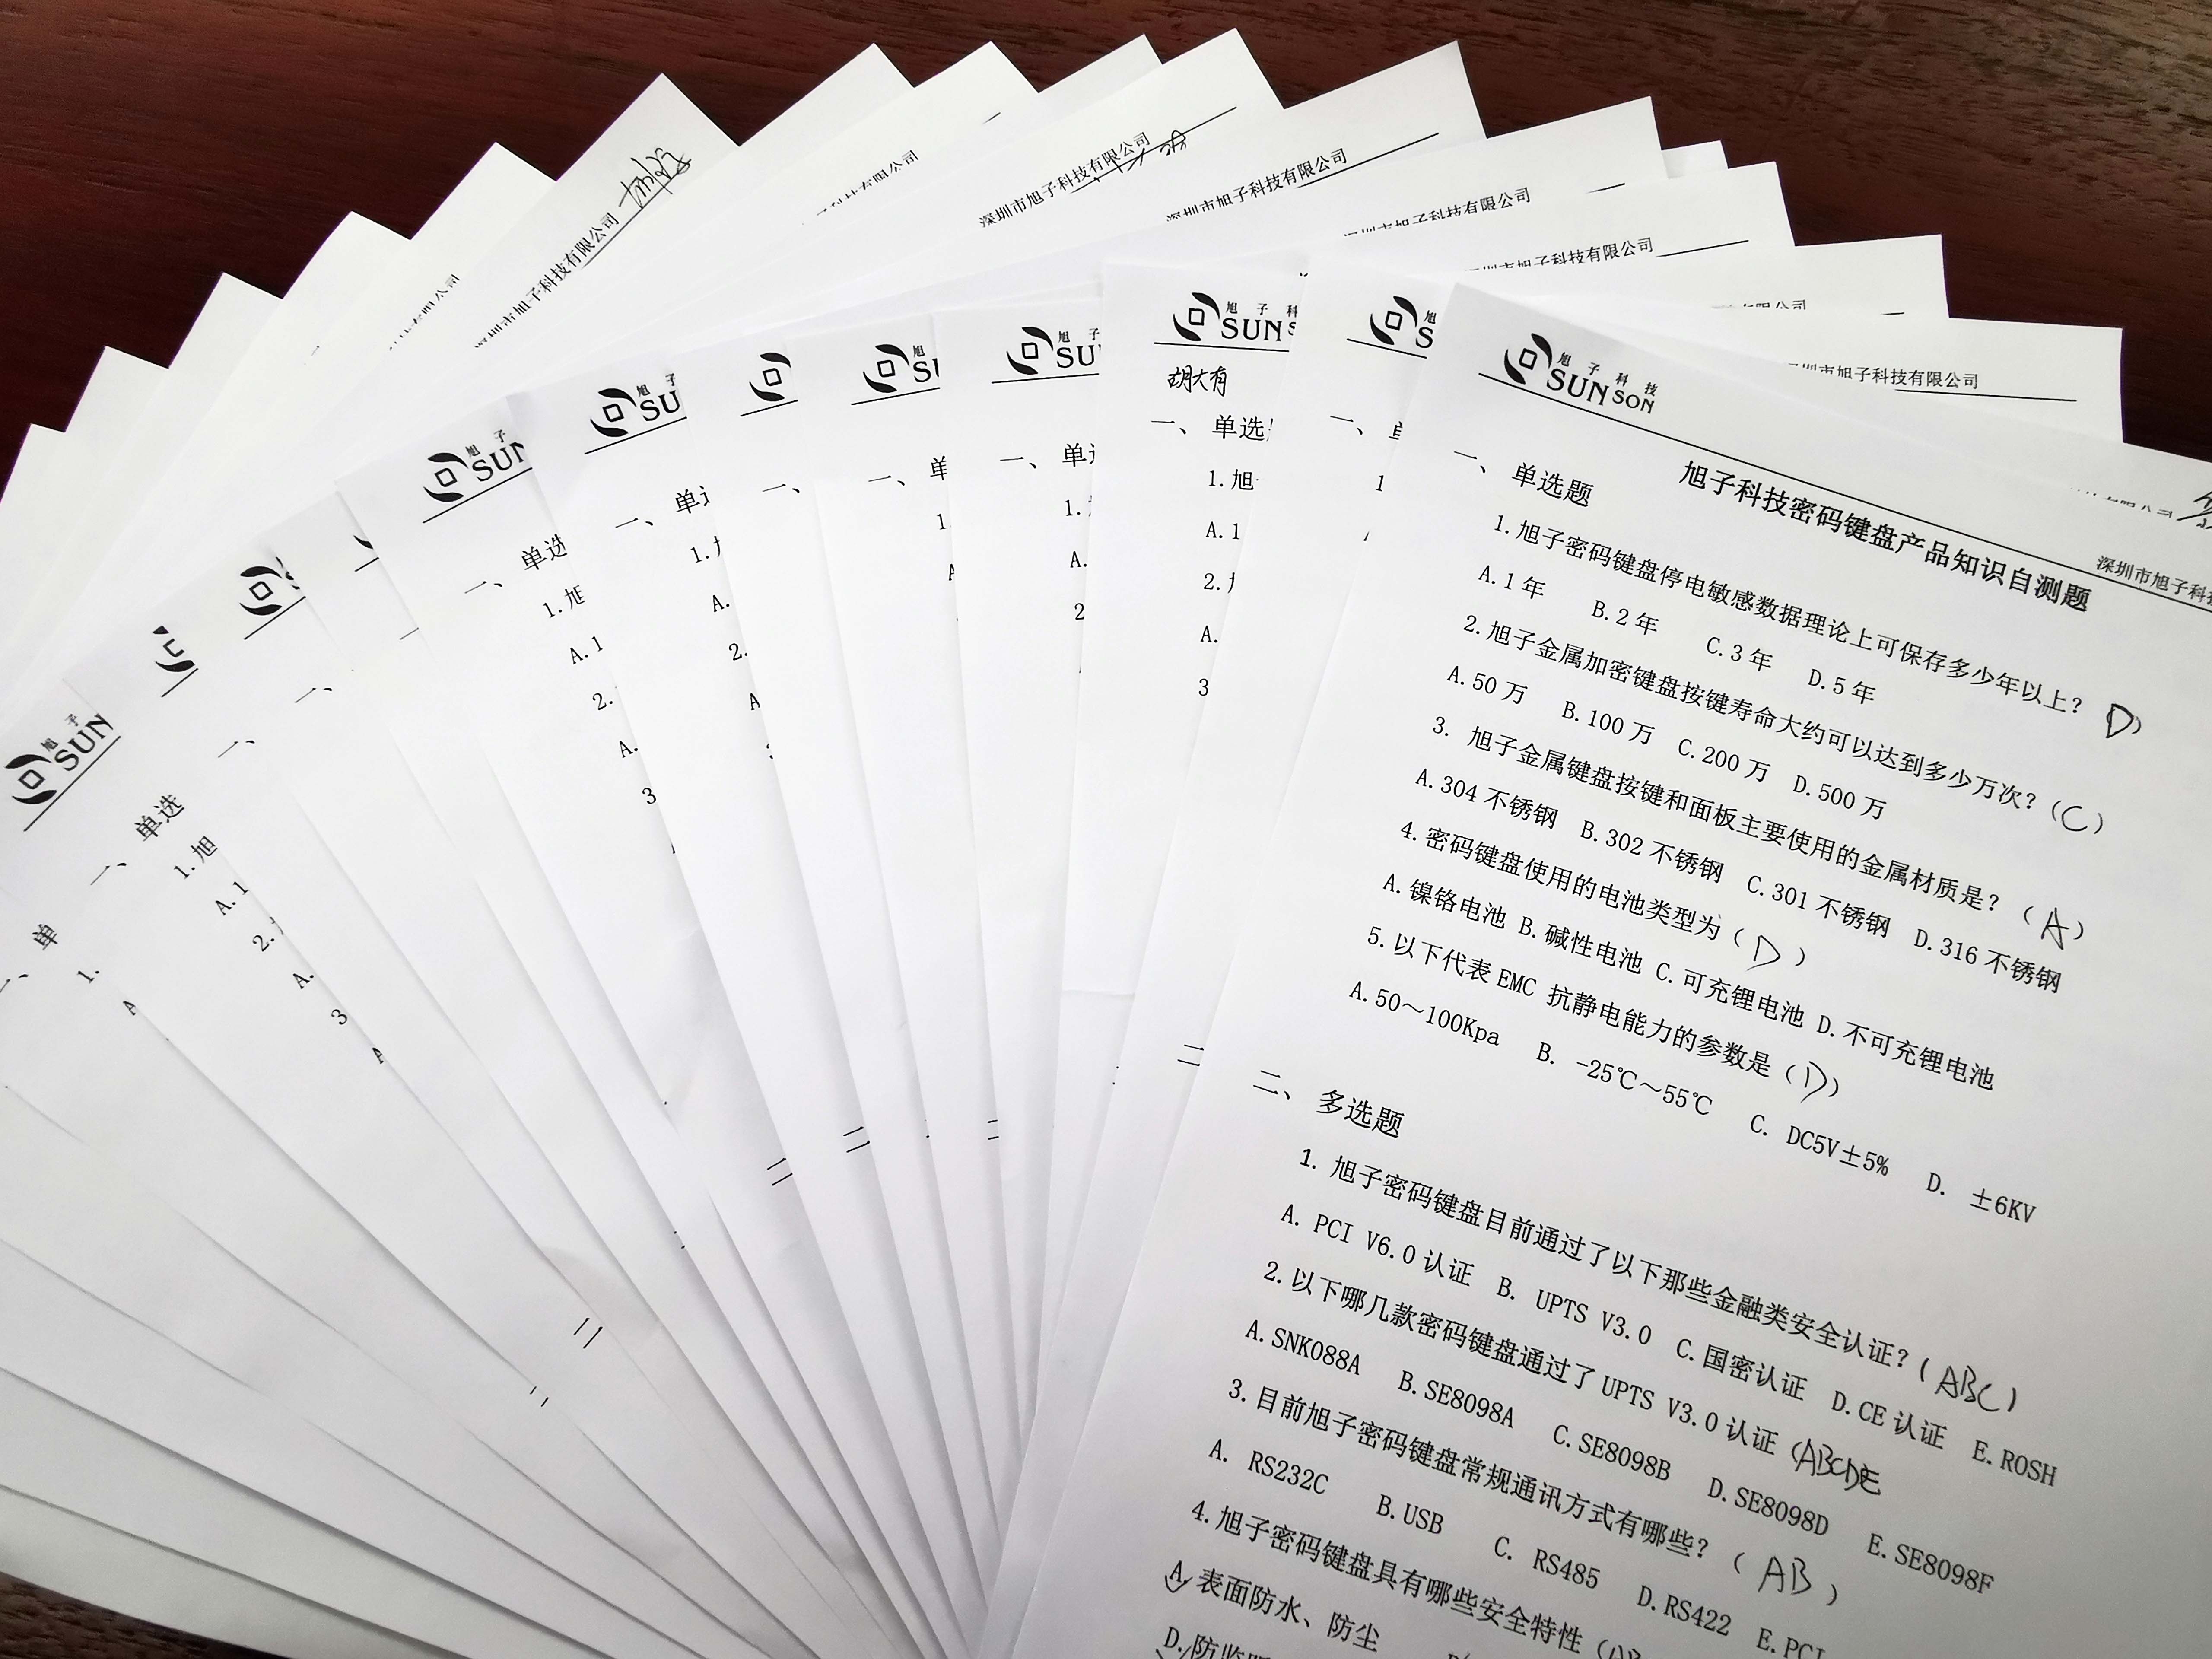 旭子科技
SUNSON
深圳市旭子科技
旭子科技密码键盘产品知识自测题
一、单选题
1.旭子密码键盘停电敏感数据理论上可保存多少年以上? D)
A.1年 B.2年 C.3年 D.5年
2.旭子金属加密键盘按键寿命大约可以达到多少万次?(C)
A.50万 B.100万 C.200万 D.500万
3. 旭子金属键盘按键和面板主要使用的金属材质是?(A)
A.304不锈钢 B.302不锈钢 C.301不锈钢 D.316不锈钢
4.密码键盘使用的电池类型为(D)
A.镍铬电池 B.碱性电池 C.可充锂电池 D.不可充锂电池
5.以下代表EMC 抗静电能力的参数是(D)
A.50~100Kpa B. -25℃~55℃ C. DC5V±5% D. ±6KV
二、多选题
1. 旭子密码键盘目前通过了以下那些金融类安全认证?(ABC)
A. PCI V6.0认证 B. UPTS V3.0 C.国密认证 D.CE认证 E.ROSH
2.以下哪几款密码键盘通过了UPTS V3.0认证(ABCDE
A.SNK088A B.SE8098A C.SE8098B D.SE8098D E.SE8098F
3.目前旭子密码键盘常规通讯方式有哪些?(AB)
A. RS232C B.USB C. RS485 D.RS422 E.PCI
4.旭子密码键盘具有哪些安全特性(
A.表面防水、防尘
D.防监
旭子科
SUNS
胡大有
一、单选
1.旭
A.1
2.
A.
3
旭
S
一、
1
旭子
SU
一、单
1.
A.
2
旭
S
一、单
1.
一、
旭子
SU
一、单
1.
A.
2.
A
旭子
SUN
一、单选
1.旭
A.1
2.
A.
3
旭子
SUN
一、单选
1.旭
A.1
2.
A.
3
A
一、单
1.
A
深圳市旭子科技有限公司
深圳市旭子科技有限公司
深圳市旭子科技有限公司
深圳市旭子科技有限公司
圳市旭子科技有限公司
圳市旭子科技有限公司
圳市旭子科技有限公司
有限公司